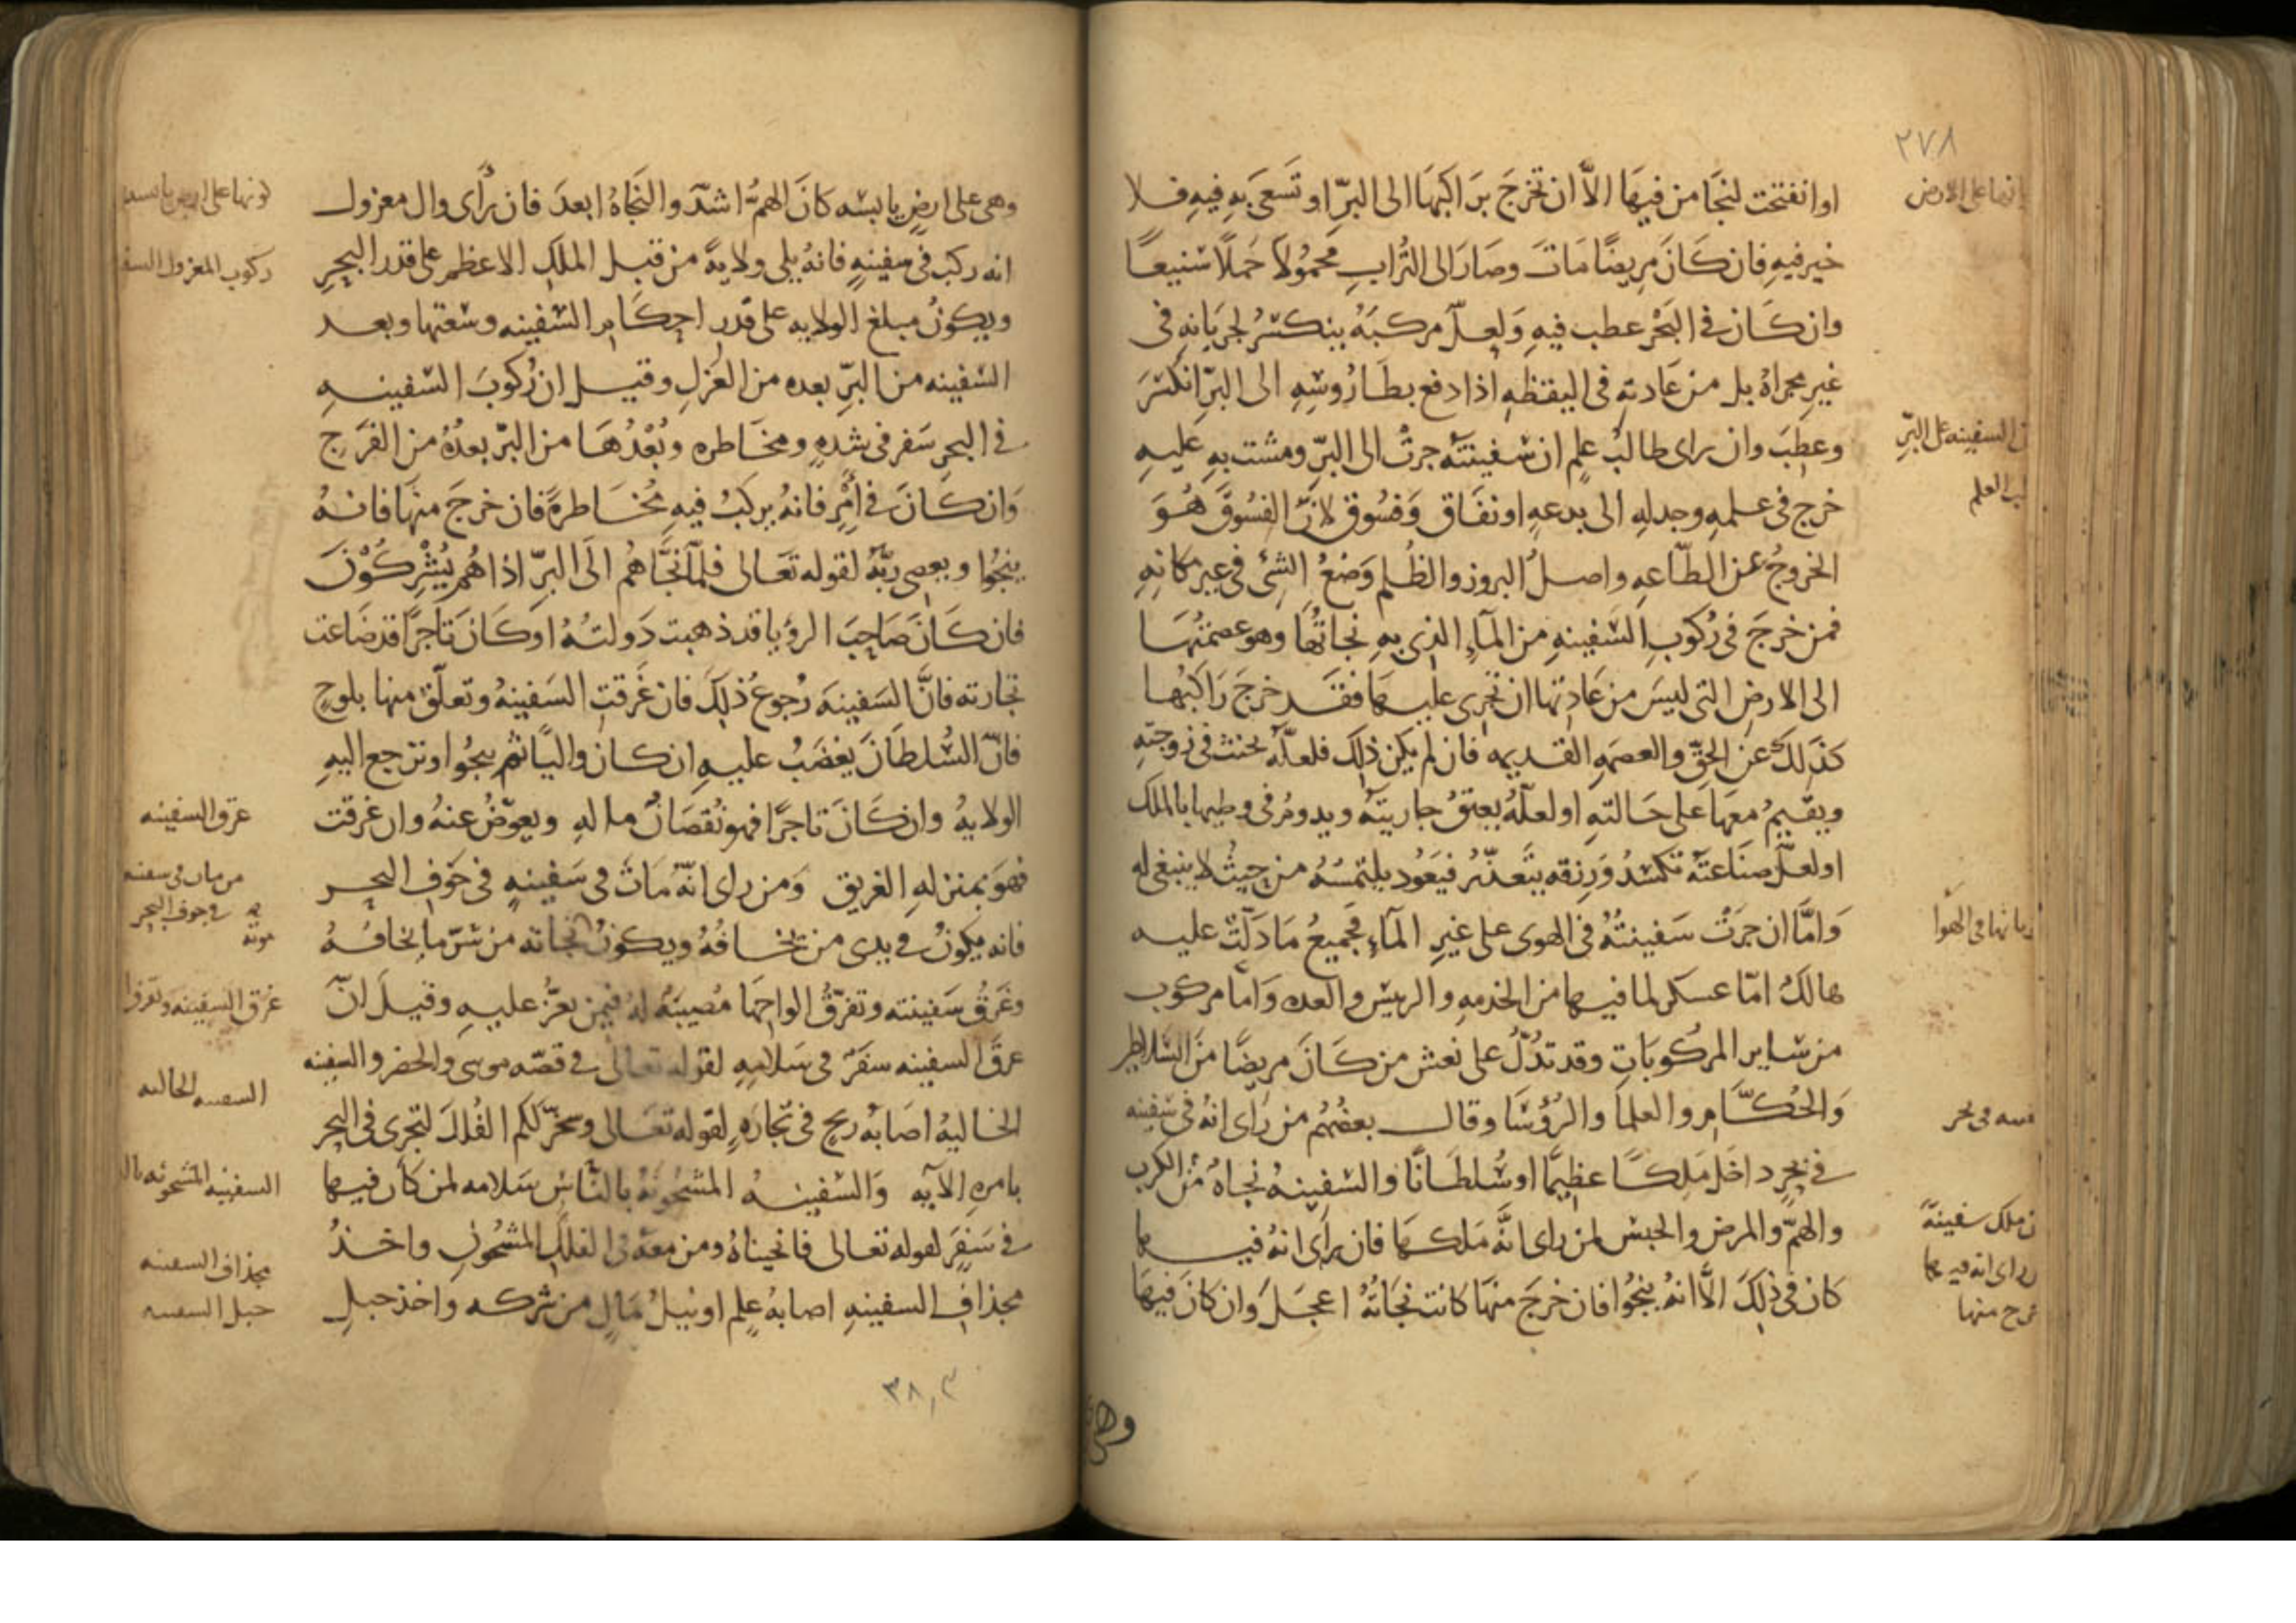 ٢٧٨
او انفتحت لنجا من فيها الّا ان تخرج براكبها الى البرّ او تسعى به فيه فلا
خير فيه فان كان مريضًا مات وصار الى التراب محمولا حملًا شنيعًا
وان كان في البحر عطب فيه ولعلّ مركبه ينكسر لجريانه في
غير مجراه بل من عادته في اليقظه اذا دفع بطاروسه الى البرّ انكسر
وعطب وان راى طالب علم ان سفينته جرت الى البرّ ومشت به عليه
خرج في علمه وجدله الى بدعه او نفاق وفسوق لانّ الفسوق هو
الخروج عن الطّاعه واصل البروز والظلم وضع الشئ في غير مكانه
فمن خرج في ركوب السفينه من المآء الذى به نجاتها وهو عصمتها
الى الارض التى ليس من عادتها ان تجرى عليها فقد خرج راكبها
كذلك عن الحقّ والعصمه القديمه فان لم يكن ذلك فلعلّه يحنث في زوجته
ويقيم معها على حالته او لعلّه يعتق جاريته ويدوم في وطيها بالملك
او لعلّ صناعته تكسد ورزقه يتعذّر فيعود يلتمسه من حيث لا ينبغى له
وامّا ان جرت سفينته في الهوى على غير المآء فجميع ما دلّت عليه
هالك امّا عسكر لما فيها من الخدمه والريس والعده وامّا مركوب
من ساير المركوبات وقد تدلّ على نعش من كان مريضًا من السلاطين
والحكّام والعلما والرؤسا وقال بعضهم من راى انه في سفينه
في بحر داخل ملكًا عظيمًا او سلطانًا والسفينه نجاة من الكرب
والهمّ والمرض والحبس لمن راى انّه ملكها فان راى انه فيها
كان في ذلك الّا انه ينجوا فان خرج منها كانت نجاته اعجل وان كان فيها
وهى
انها على الارض
السفينه على البرّ
العلم
في الهوا
في بحر
ملك سفينة
راى انه فيها
منها
وهى على ارض يابسه كان الهمّ اشدّ والنجاة ابعد فان رأى وال معزول
انه ركب في سفينه فانه يلى ولاية من قبل الملك الاعظم على قدر البحر
ويكون مبلغ الولايه على قدر احكام السفينه وسعتها وبعد
السفينه من البرّ بعده من العزل وقيل ان ركوب السفينه
في البحر سفر في شده ومخاطره وبعدها من البرّ بعده من الفرج
وان كان في أمر فانه يركب فيه مخاطرة فان خرج منها فانه
ينجوا ويعصى ربّه لقوله تعالى فلمّا نجّاهم الى البرّ اذا هم يشركون
فان كان صاحب الرؤيا قد ذهبت دولته او كان تاجرًا قد ضاعت
تجارته فانّ السفينه رجوع ذلك فان غرقت السفينه وتعلّق منها بلوح
فانّ السلطان يغضب عليه ان كان واليًا ثم ينجوا وترجع اليه
الولايه وان كان تاجرًا فهو نقصان ماله ويعوّض عنه وان غرقت
فهو بمنزله الغريق ومن راى انّه مات في سفينه في جوف البحر
فانه يكون في يدى من يخافه ويكون نجاته من شرّ ما يخافه
وغرق سفينته وتفرّق الواحها مصيبة له فيمن يعزّ عليه وقيل انّ
غرق السفينه سفر في سلامه لقوله تعالى في قصّه موسى والخضر والسفينه
الخاليه اصابه ربح في تجاره لقوله تعالى وسخّر لكم الفلك لتجرى في البحر
بامره الآيه والسفينه المشحونه بالناس سلامه لمن كان فيها
في سفر لقوله تعالى فانجيناه ومن معه في الفلك المشحون واخذ
مجذاف السفينه اصابه علم او نيل مال من شركه واخذ حبل
كونها على ارض يابسه
ركوب المعزول السف
غرق السفينه
من مات في سفينه
في جوف البحر
موته
غرق السفينه وتفرق
السفينه الخاليه
السفينه المشحونه بال
مجذاف السفينه
حبل السفينه